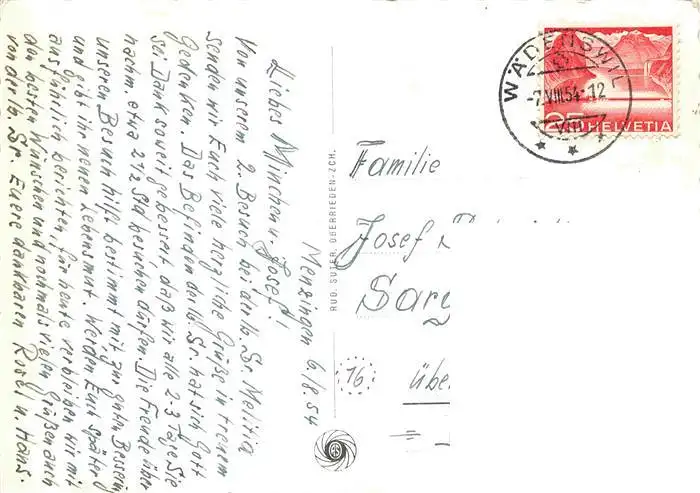 Menzingen 6/8.54
Liebes Minchen u. Josef!
Von unserem 2. Besuch bei der lb. Sr. Melitia
senden wir Euch viele herzliche Grüße in treuem
Gedenken. Das Befinden der lb. Sr. hat sich Gott
sei Dank soweit gebessert, daß wir alle 2-3 Tage Sie
nachm. etwa 2 1/2 Std besuchen dürfen. Die Freude über
unseren Besuch hilft bestimmt mit zur guten Besserung
und gibt ihr neuen Lebensmut. Werden Euch später
ausführlich berichten, für heute verbleiben wir mit
den besten Wünschen und nochmals vielen Grüßen auch
von der lb. Sr. Euere dankbaren Rosel u. Hans.
RUD. SUTER, OBERRIEDEN-ZCH.
WÄDENSWIL
-7.VIII.54-12
VIII
25
HELVETIA
Familie
Josef
Sarg
übe
16